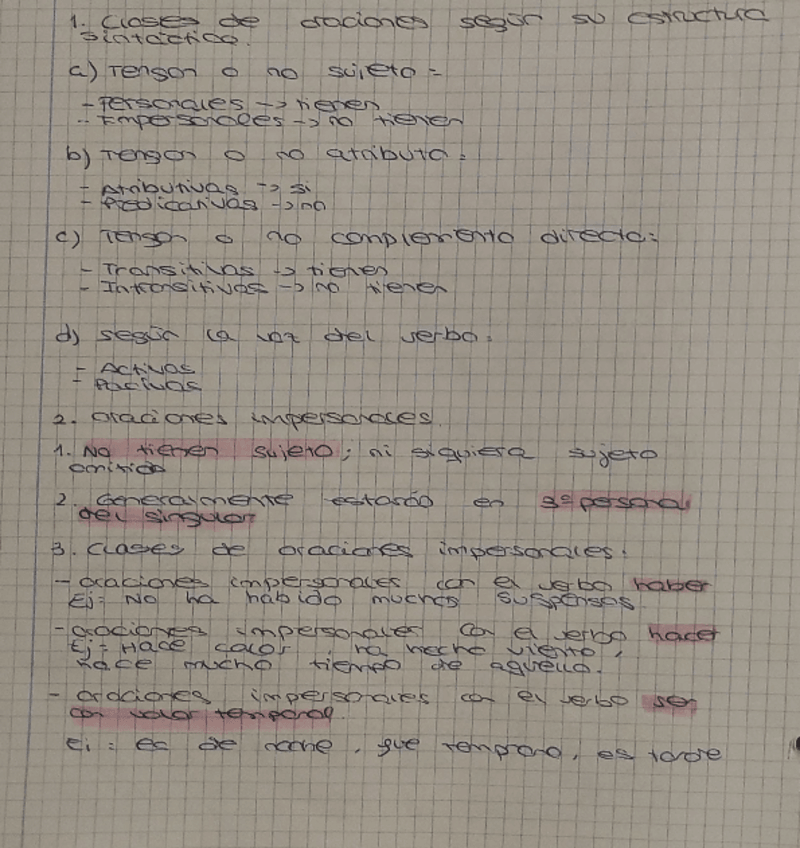 1. Clases de oraciones según su estructura
sintáctica.
a) Tengan o no sujeto =
- Personales -> tienen
- Impersonales -> no tienen
b) Tengan o no atributo:
- Atributivas -> si
- Predicativas -> no
c) Tengan o no complemento directo:
- Transitivas -> tienen
- Intransitivas -> no tienen
d) según la voz del verbo:
- Activas
- Pacivas
2. Oraciones impersonales.
1. No tienen sujeto; ni siquiera sujeto
omitido
2. Generalmente estarán en 3ª persona
del singular
3. Clases de oraciones impersonales:
- oraciones impersonales con el verbo haber
Ej= No ha habido muchos suspensos
- oraciones impersonales con el verbo hacer
Ej= Hace calor, ha hecho viento,
hace mucho tiempo de aquello.
- oraciones impersonales con el verbo ser
con valor temporal.
Ej: es de noche, fue temprano, es tarde